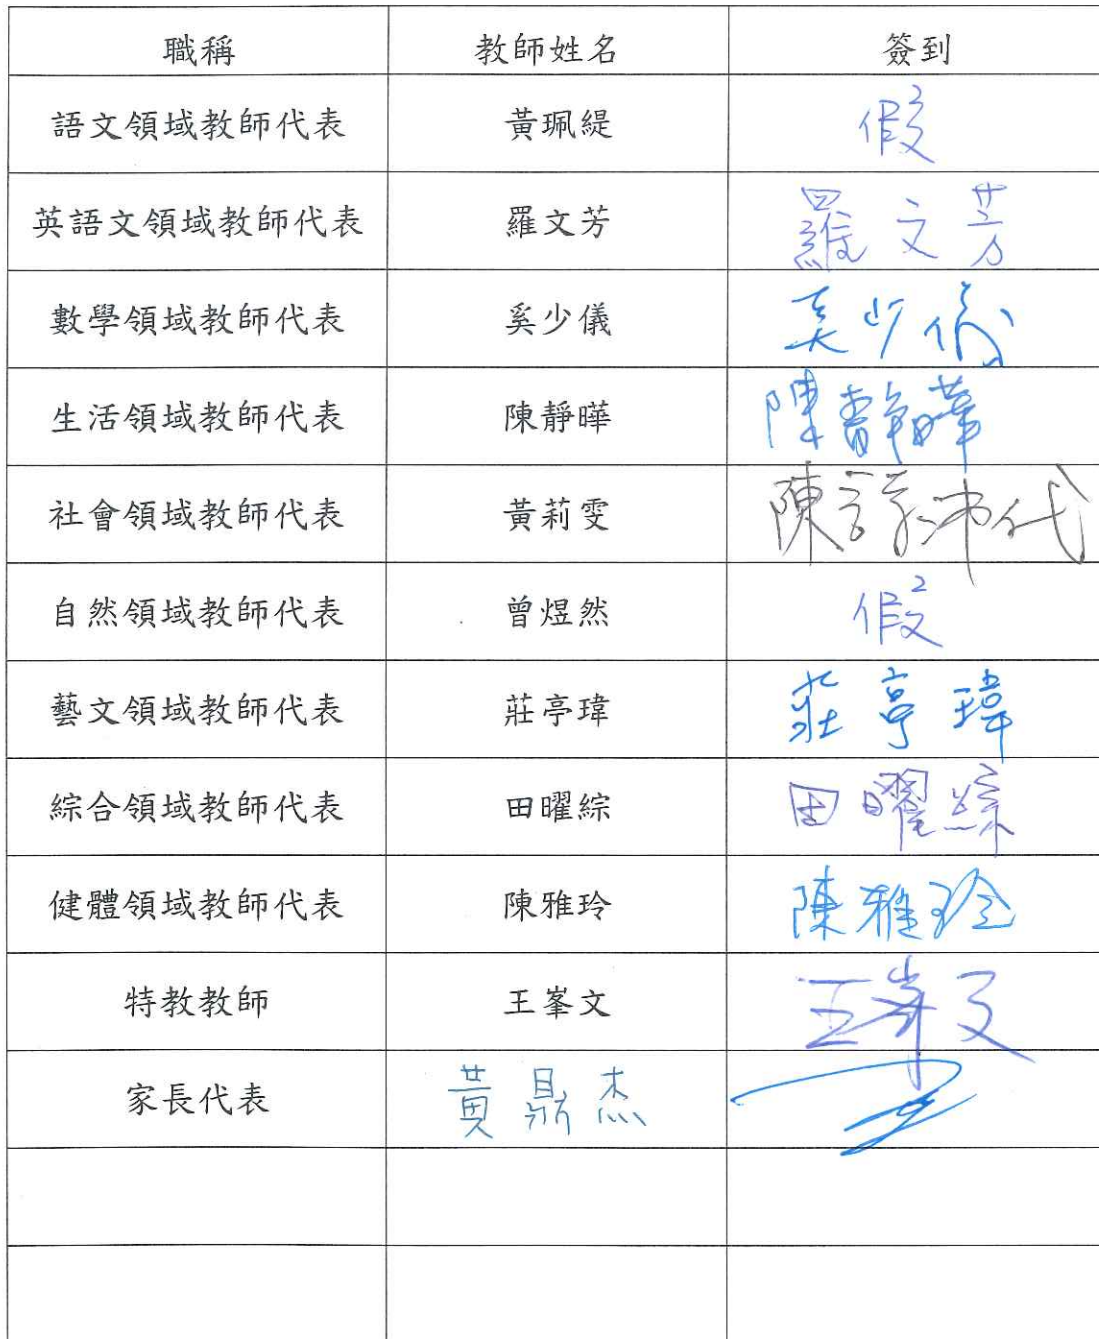 職稱 教師姓名 簽到
語文領域教師代表 黃珮緹 假
英語文領域教師代表 羅文芳 羅文芳
數學領域教師代表 奚少儀 奚少儀
生活領域教師代表 陳靜曄 陳靜曄
社會領域教師代表 黃莉雯 陳 代
自然領域教師代表 曾煜然 假
藝文領域教師代表 莊亭瑋 莊亭瑋
綜合領域教師代表 田曜綜 田曜綜
健體領域教師代表 陳雅玲 陳雅玲
特教教師 王峯文 王峯文
家長代表 黃鼎杰